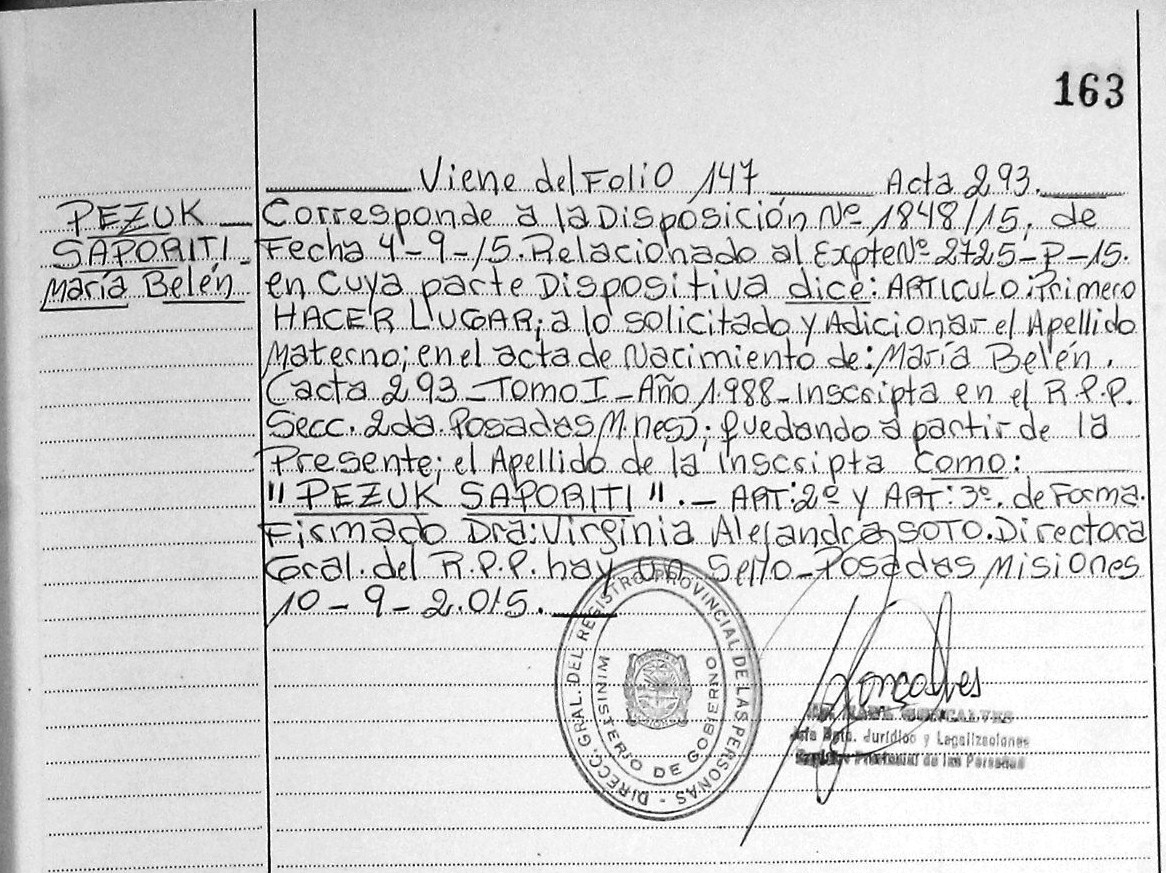 163
Viene del Folio 147 Acta 293.
PEZUK
SAPORITI
María Belén
Corresponde a la Disposición Nº 1848/15, de
Fecha 4-9-15. Relacionado al Expte Nº 2725-P-15.
en Cuya parte Dispositiva dice: ARTICULO: Primero
HACER LUGAR; a lo solicitado y Adicionar el Apellido
Materno; en el acta de Nacimiento de: María Belén.
(acta 293 - Tomo I - Año 1.988 - inscripta en el R.P.P.
Secc. 2da. Posadas (M.nes); quedando a partir de la
Presente; el Apellido de la inscripta como:
"PEZUK SAPORITI". - ART: 2º y ART: 3º. de Forma.
Firmado Dra: Virginia Alejandra SOTO. Directora
Gral. del R.P.P. hay un Sello - Posadas Misiones
10-9-2.015.
DIRECC. GRAL. DEL REGISTRO PROVINCIAL DE LAS PERSONAS -
MINISTERIO DE GOBIERNO
Goncalves
GONCALVES
Jefe Dpto. Jurídico y Legalizaciones
Registro Provincial de las Personas